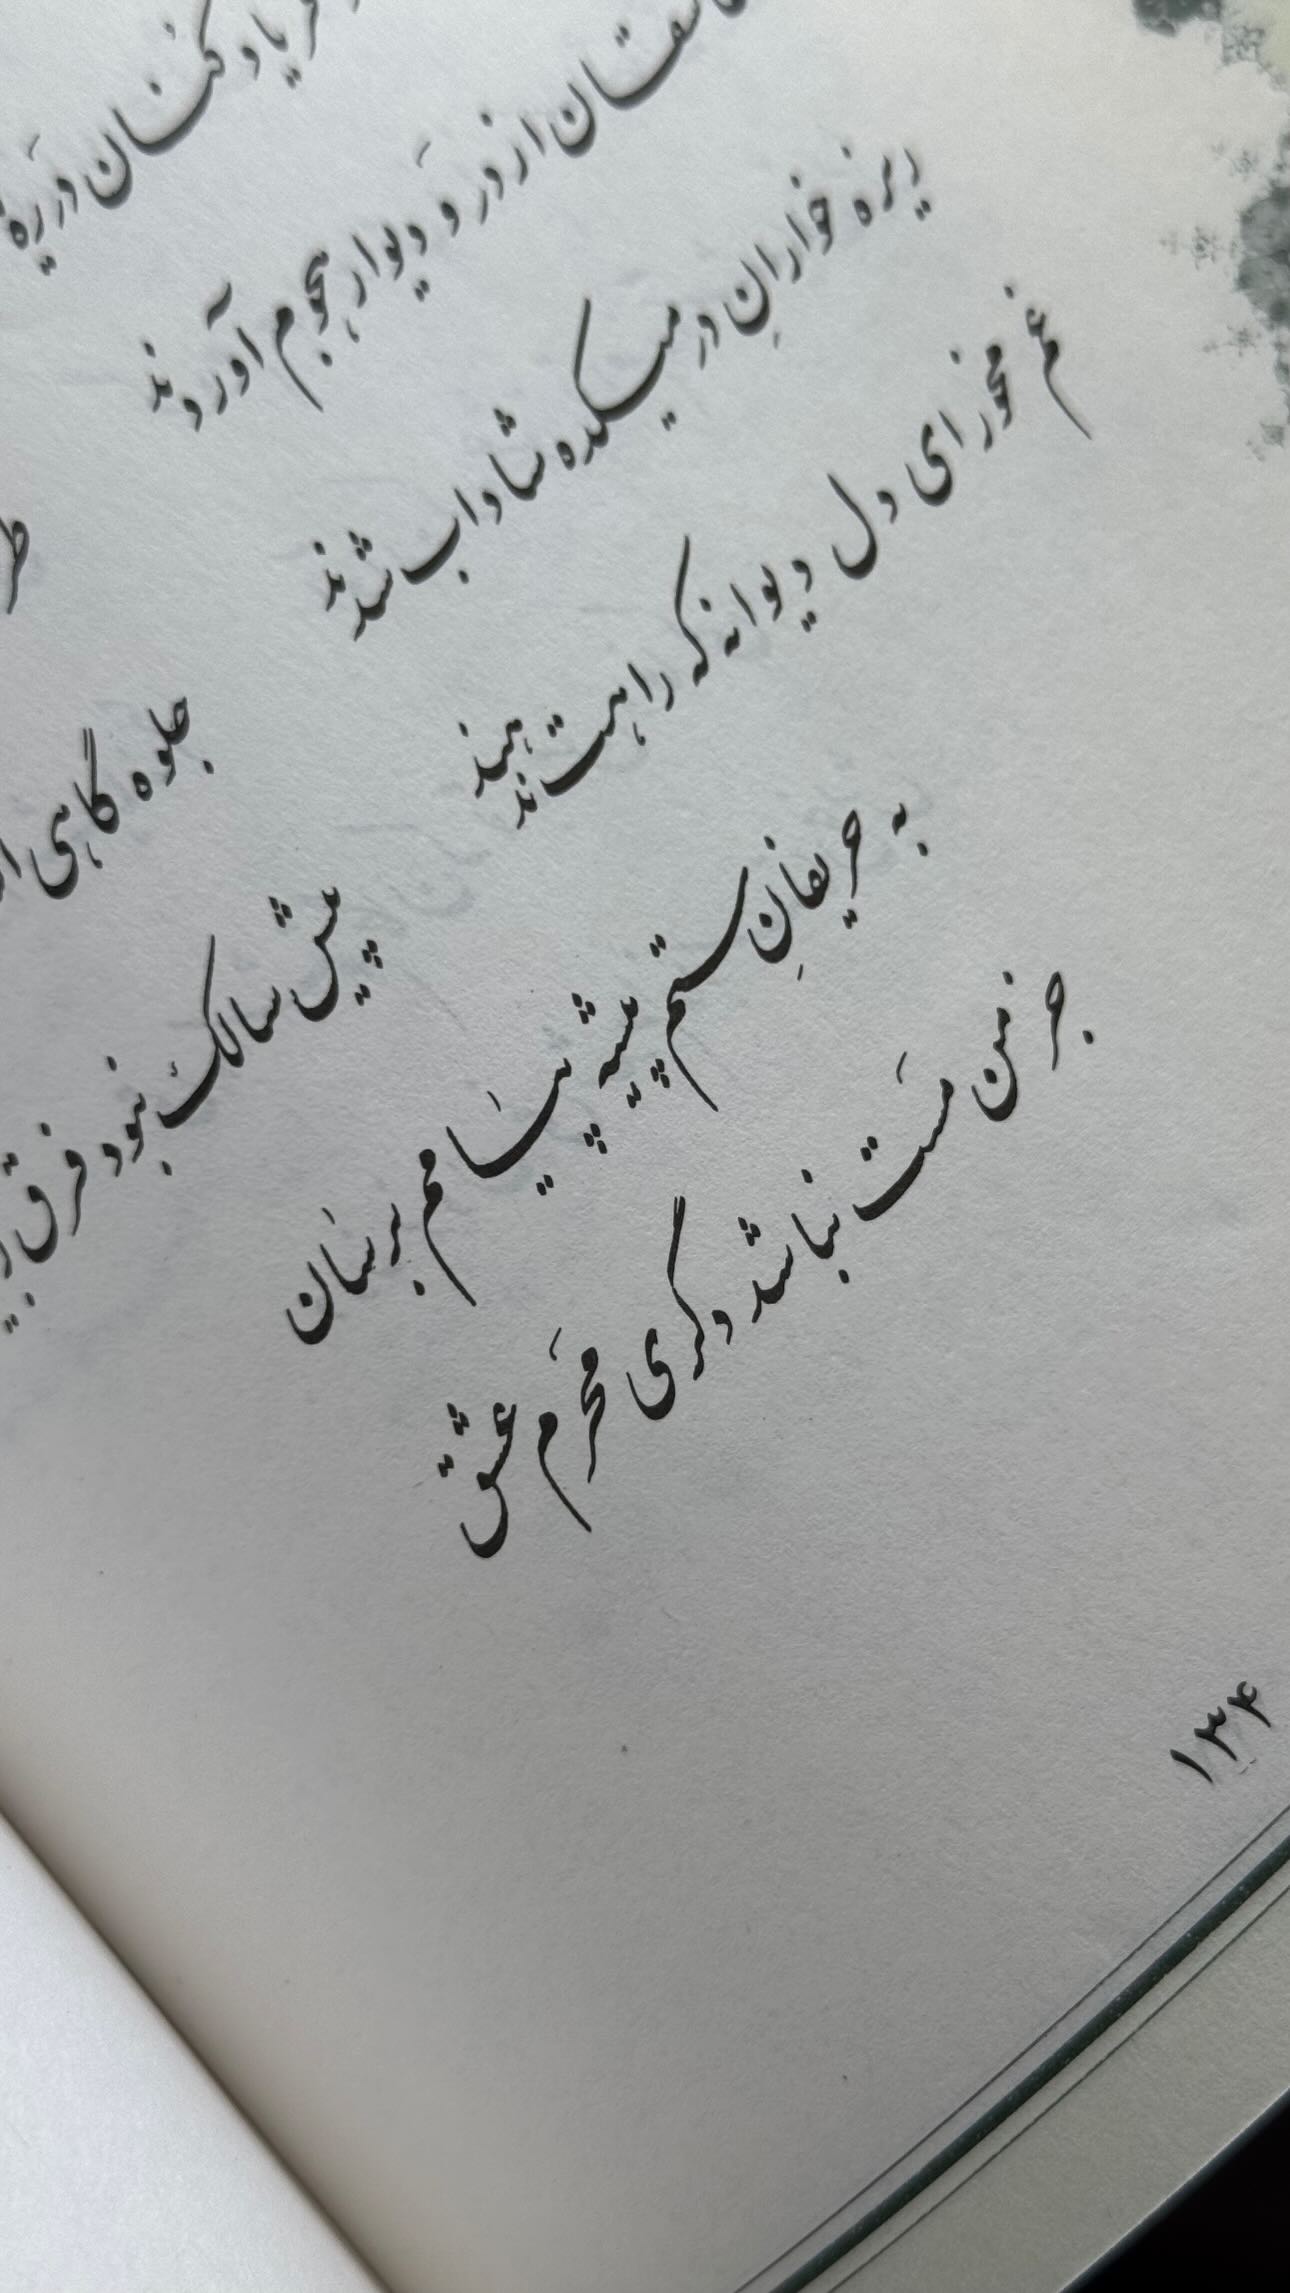 فریاد کنان در ره
از در و دیوار هجوم آوردند
ریزه خوارانِ در میکده شاداب شدند
غم مخور ای دل دیوانه که راهت ندهند
جلوه گاهی
پیش سالک نبود فرق
به حریفانِ ستم پیشه پیامم برسان
جز من مست نباشد دگری محرم عشق
۱۳۴